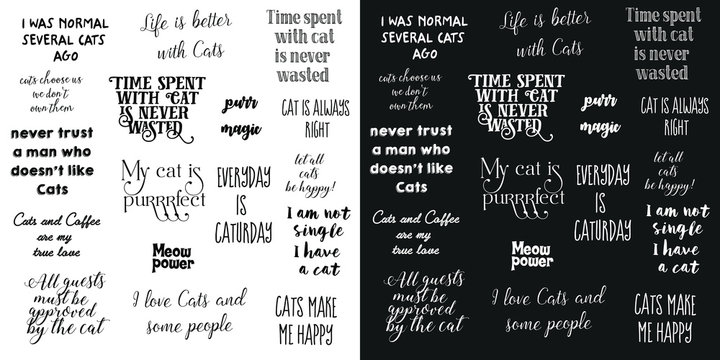 I WAS NORMAL
SEVERAL CATS
AGO
Life is better
with Cats
Time spent
with cat
is never
wasted
cats choose us
we don't
own them
TIME SPENT
WITH CAT
IS NEVER
WASTED
purr
magic
CAT IS ALWAYS
RIGHT
never trust
a man who
doesn't like
Cats
My cat is
purrrrfect
EVERYDAY
IS
CATURDAY
let all
cats
be happy!
Cats and Coffee
are my
true love
Meow
power
I am not
single
I have
a cat
All guests
must be
approved
by the cat
I love Cats and
some people
CATS MAKE
ME HAPPY
I WAS NORMAL
SEVERAL CATS
AGO
Life is better
with Cats
Time spent
with cat
is never
wasted
cats choose us
we don't
own them
TIME SPENT
WITH CAT
IS NEVER
WASTED
purr
magic
CAT IS ALWAYS
RIGHT
never trust
a man who
doesn't like
Cats
My cat is
purrrrfect
EVERYDAY
IS
CATURDAY
let all
cats
be happy!
Cats and Coffee
are my
true love
Meow
power
I am not
single
I have
a cat
All guests
must be
approved
by the cat
I love Cats and
some people
CATS MAKE
ME HAPPY